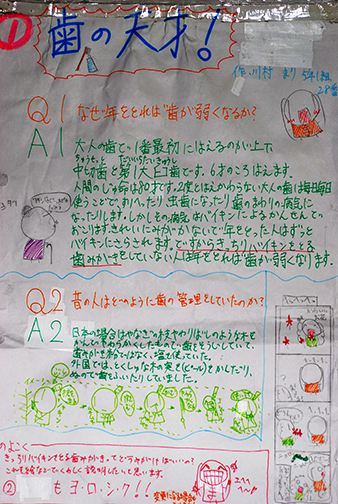 ①
歯の天才!
作、川村 まり 5年1組
28番
Q1 なぜ年をとれば歯が弱くなるか?
A1 大人の歯で、1番最初にはえるのが上下
ちゅうせっし
中切歯と第1大臼歯です。6才のころはえます。
人間のじゅ命は80才です。2度とはえかわらない大人の歯は毎日毎日
使うことで、おれへったり、虫歯になったり歯のまわりの病気に
なったりします。しかしその病気はバイキンによるかんせんで
おこります。きれいにみがかないで年をとった人はずっと
バイキンにさらされます。ですからきっちりバイキンをとる
歯みがきをしていない人は年をとれば歯が弱くなります。
Q2 昔の人はどのように歯の管理をしていたのか?
A2 日本の場合はやなぎの枝やわりばしのような木を
かんでやわらかくしたもので歯をそうじしていて、
歯みがき粉ではなく、塩を使っていた。
外国では、とくしゅな木の実を(ビール)をかんだり、
ぬので歯をふいたりしていました。
のよこく
きっちりバイキンをとる歯みがきってどうみがけばいいの?
これを絵などでくわしく説明したいと思います。
② もヨ・ロ・シ・ク!!